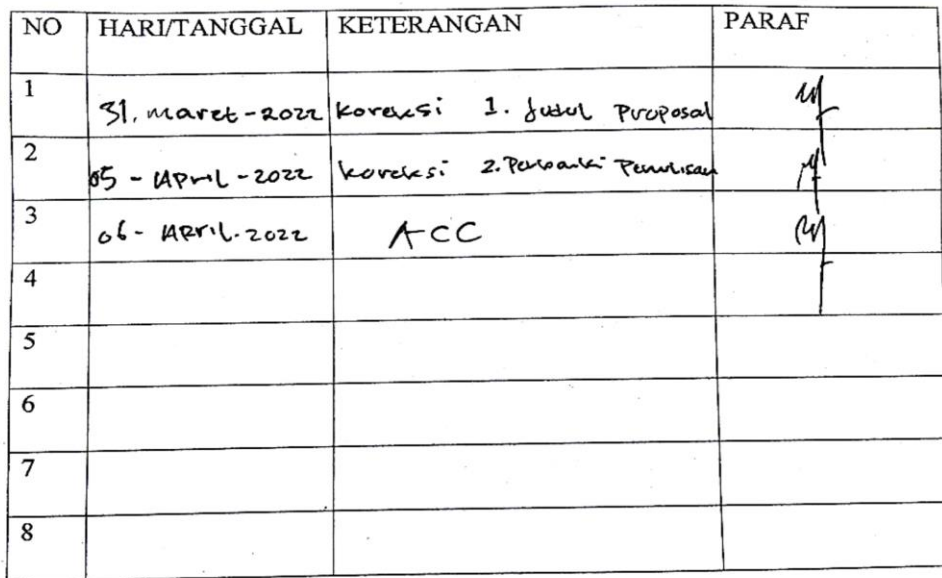 NO HARI/TANGGAL KETERANGAN PARAF
1 31. maret-2022 koreksi 1. Judul Proposal
2 05 - April - 2022 koreksi 2. Perbaiki Penulisan
3 06 - April. 2022 ACC
4
5
6
7
8